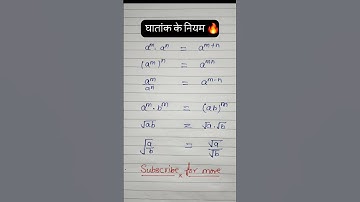 घातांक के नियम 🔥
aᵐ · aⁿ = aᵐ⁺ⁿ
(aᵐ)ⁿ = aᵐⁿ
aᵐ/aⁿ = aᵐ⁻ⁿ
aᵐ · bᵐ = (ab)ᵐ
√ab = √a · √b
√(a/b) = √a/√b
Subscribe for more